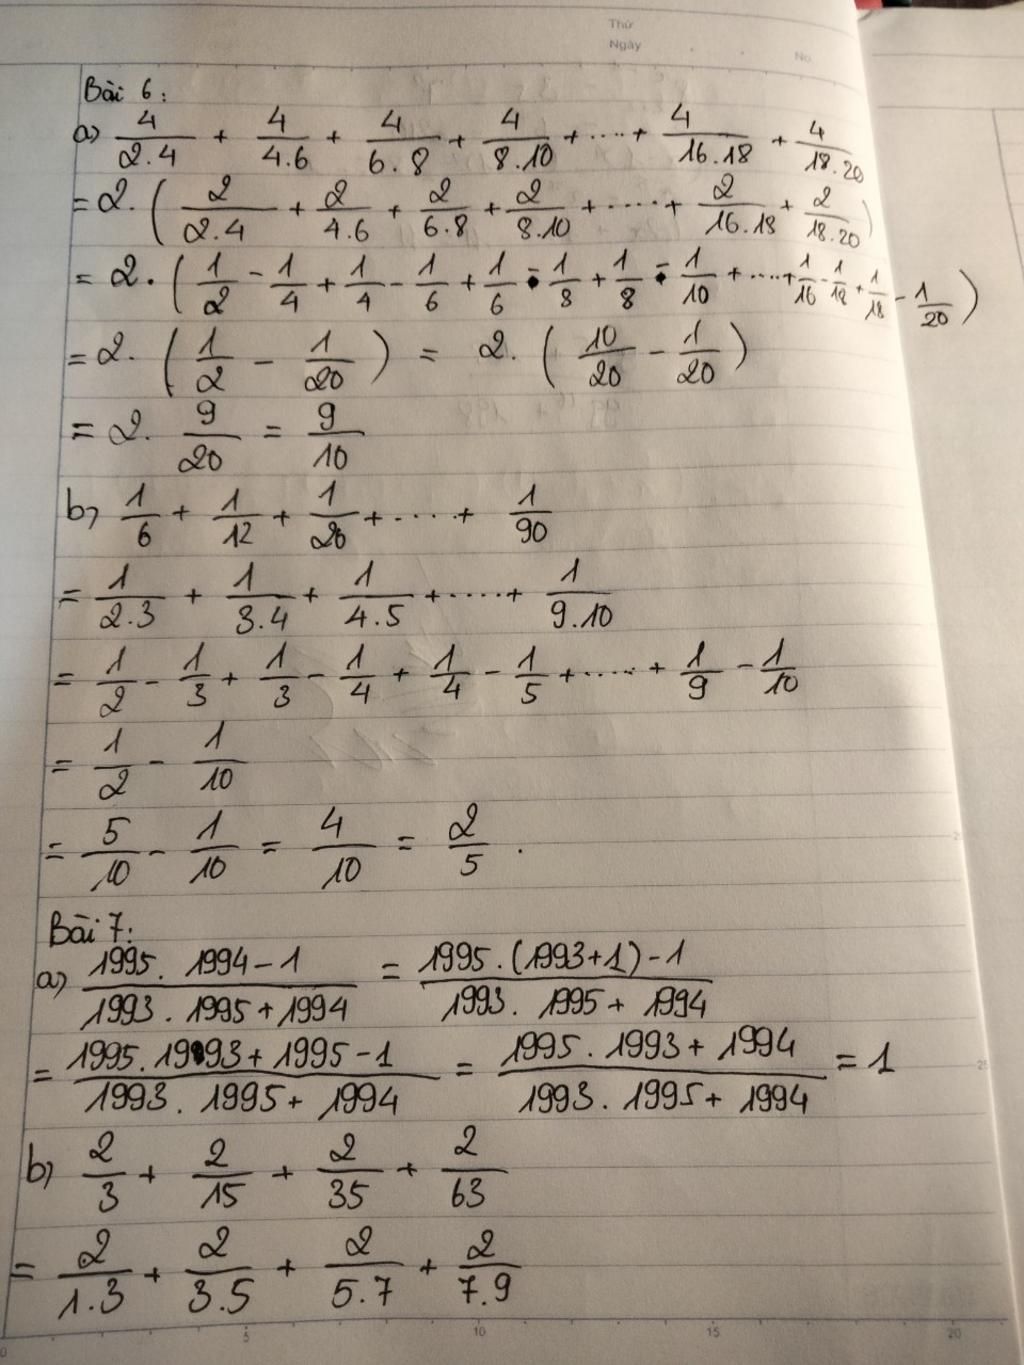 Thứ
Ngày
No.
Bài 6:
a) 4/2.4 + 4/4.6 + 4/6.8 + 4/8.10 + .... + 4/16.18 + 4/18.20
= 2. ( 2/2.4 + 2/4.6 + 2/6.8 + 2/8.10 + ..... + 2/16.18 + 2/18.20 )
= 2. ( 1/2 - 1/4 + 1/4 - 1/6 + 1/6 - 1/8 + 1/8 - 1/10 + ..... + 1/16 - 1/18 + 1/18 - 1/20 )
= 2. ( 1/2 - 1/20 ) = 2. ( 10/20 - 1/20 )
= 2. 9/20 = 9/10
b) 1/6 + 1/12 + 1/20 + ..... + 1/90
= 1/2.3 + 1/3.4 + 1/4.5 + ..... + 1/9.10
= 1/2 - 1/3 + 1/3 - 1/4 + 1/4 - 1/5 + ..... + 1/9 - 1/10
= 1/2 - 1/10
= 5/10 - 1/10 = 4/10 = 2/5 .
Bài 7:
a) 1995. 1994 - 1 / 1993. 1995 + 1994 = 1995. (1993 + 1) - 1 / 1993. 1995 + 1994
= 1995. 1993 + 1995 - 1 / 1993. 1995 + 1994 = 1995. 1993 + 1994 / 1993. 1995 + 1994 = 1
b) 2/3 + 2/15 + 2/35 + 2/63
= 2/1.3 + 2/3.5 + 2/5.7 + 2/7.9
0 5 10 15 20